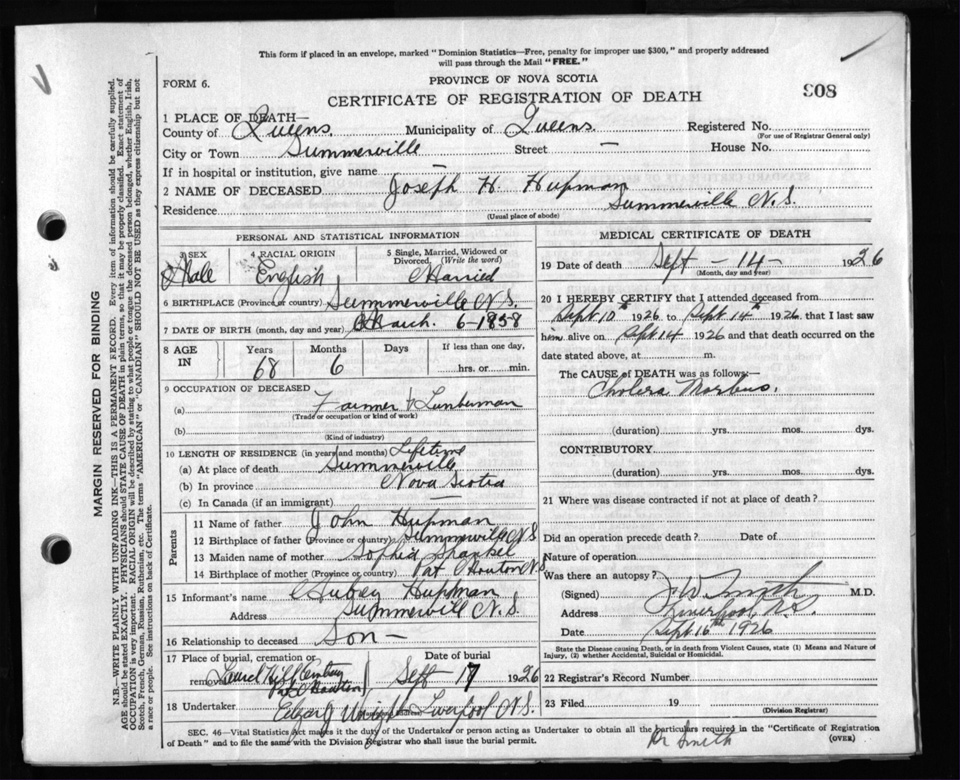 This form if placed in an envelope, marked "Dominion Statistics—Free, penalty for improper use $300," and properly addressed
will pass through the Mail "FREE."
FORM 6.
PROVINCE OF NOVA SCOTIA
CERTIFICATE OF REGISTRATION OF DEATH
908
MARGIN RESERVED FOR BINDING
N.B.—WRITE PLAINLY WITH UNFADING INK—THIS IS A PERMANENT RECORD. Every item of information should be carefully supplied.
AGE should be stated EXACTLY. PHYSICIANS should STATE CAUSE OF DEATH in plain terms, so that it may be properly classified. Exact statement of
OCCUPATION is very important. RACIAL ORIGIN will be described by stating to what people or tongue the deceased person belonged, whether English, Irish,
Scotch, French, German, Russian, Ruthenian, etc. The terms "AMERICAN" or "CANADIAN" SHOULD NOT BE USED as they express citizenship but not
a race or people. See instructions on back of Certificate.
1 PLACE OF DEATH—
County of Queens Municipality of Queens Registered No.
(For use of Registrar General only)
City or Town Summerville Street — House No.
If in hospital or institution, give name —
2 NAME OF DECEASED Joseph H. Hupman
Residence Summerville N.S.
(Usual place of abode)
PERSONAL AND STATISTICAL INFORMATION
3 SEX 4 RACIAL ORIGIN 5 Single, Married, Widowed or
Divorced. (Write the word)
Male English Married
6 BIRTHPLACE (Province or country) Summerville N.S.
7 DATE OF BIRTH (month, day and year) March. 6-1858
8 AGE IN Years Months Days If less than one day,
68 6 hrs. or min.
9 OCCUPATION OF DECEASED
(a) Farmer & Lumberman
(Trade or occupation or kind of work)
(b)
(Kind of industry)
10 LENGTH OF RESIDENCE (in years and months) Lifetime
(a) At place of death Summerville
(b) In province Nova Scotia
(c) In Canada (if an immigrant)
Parents
11 Name of father John Hupman
12 Birthplace of father (Province or country) Summerville N.S.
13 Maiden name of mother Sophia
14 Birthplace of mother (Province or country) Pat Mouton N.S
15 Informant's name Aubrey Hupman
Address Summervill N.S.
16 Relationship to deceased Son —
17 Place of burial, cremation or removal Date of burial
Sept 17 1926
18 Undertaker Address Liverpool N.S.
MEDICAL CERTIFICATE OF DEATH
19 Date of death Sept - 14 - 1926
(Month, day and year)
20 I HEREBY CERTIFY that I attended deceased from
Sept 10th 1926 to Sept 14th 1926, that I last saw
him alive on Sept 14 1926 and that death occurred on the
date stated above, at m.
The CAUSE OF DEATH was as follows:—
Cholera Morbus.
(duration) yrs. mos. dys.
CONTRIBUTORY
(duration) yrs. mos. dys.
21 Where was disease contracted if not at place of death?
Did an operation precede death? Date of
Nature of operation
Was there an autopsy?
(Signed) J W Smith M.D.
Address Liverpool, N.S.
Date Sept 16th 1926
State the Disease causing Death, or in death from Violent Causes, state (1) Means and Nature of
Injury, (2) whether Accidental, Suicidal or Homicidal.
22 Registrar's Record Number
23 Filed 19
(Division Registrar)
SEC. 46—Vital Statistics Act makes it the duty of the Undertaker or person acting as Undertaker to obtain all the particulars required in the "Certificate of Registration
of Death" and to file the same with the Division Registrar who shall issue the burial permit.
(OVER)
Dr Smith